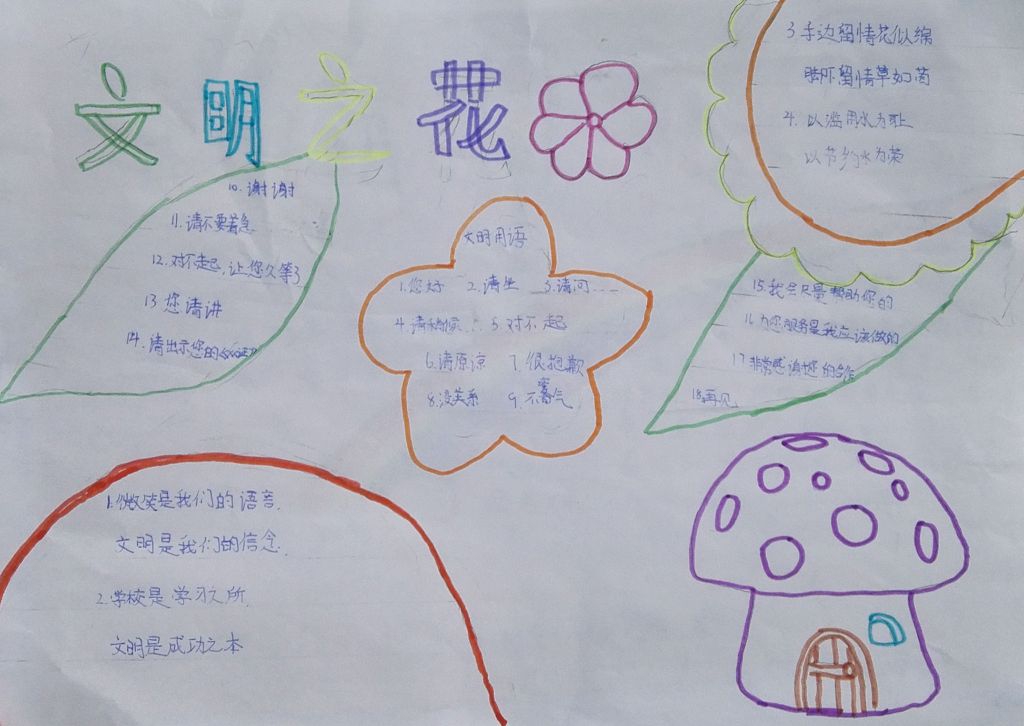 文明之花
3.手边留情花似绵
脚下留情草如茵
4.以滥用水为耻
以节约水为荣
10.谢谢
11.请不要着急
12.对不起,让您久等了
13 您请讲
14.请出示您的
文明用语
1.您好 2.请坐 3.请问……
4.请稍候… 5.对不起
6.请原谅 7.很抱歉
8.没关系 9.不客气
15.我会尽量帮助您的
16.为您服务是我应该做的
17.非常感谢您的合作
18.再见
1.微笑是我们的语言.
文明是我们的信念.
2.学校是学习之所.
文明是成功之本